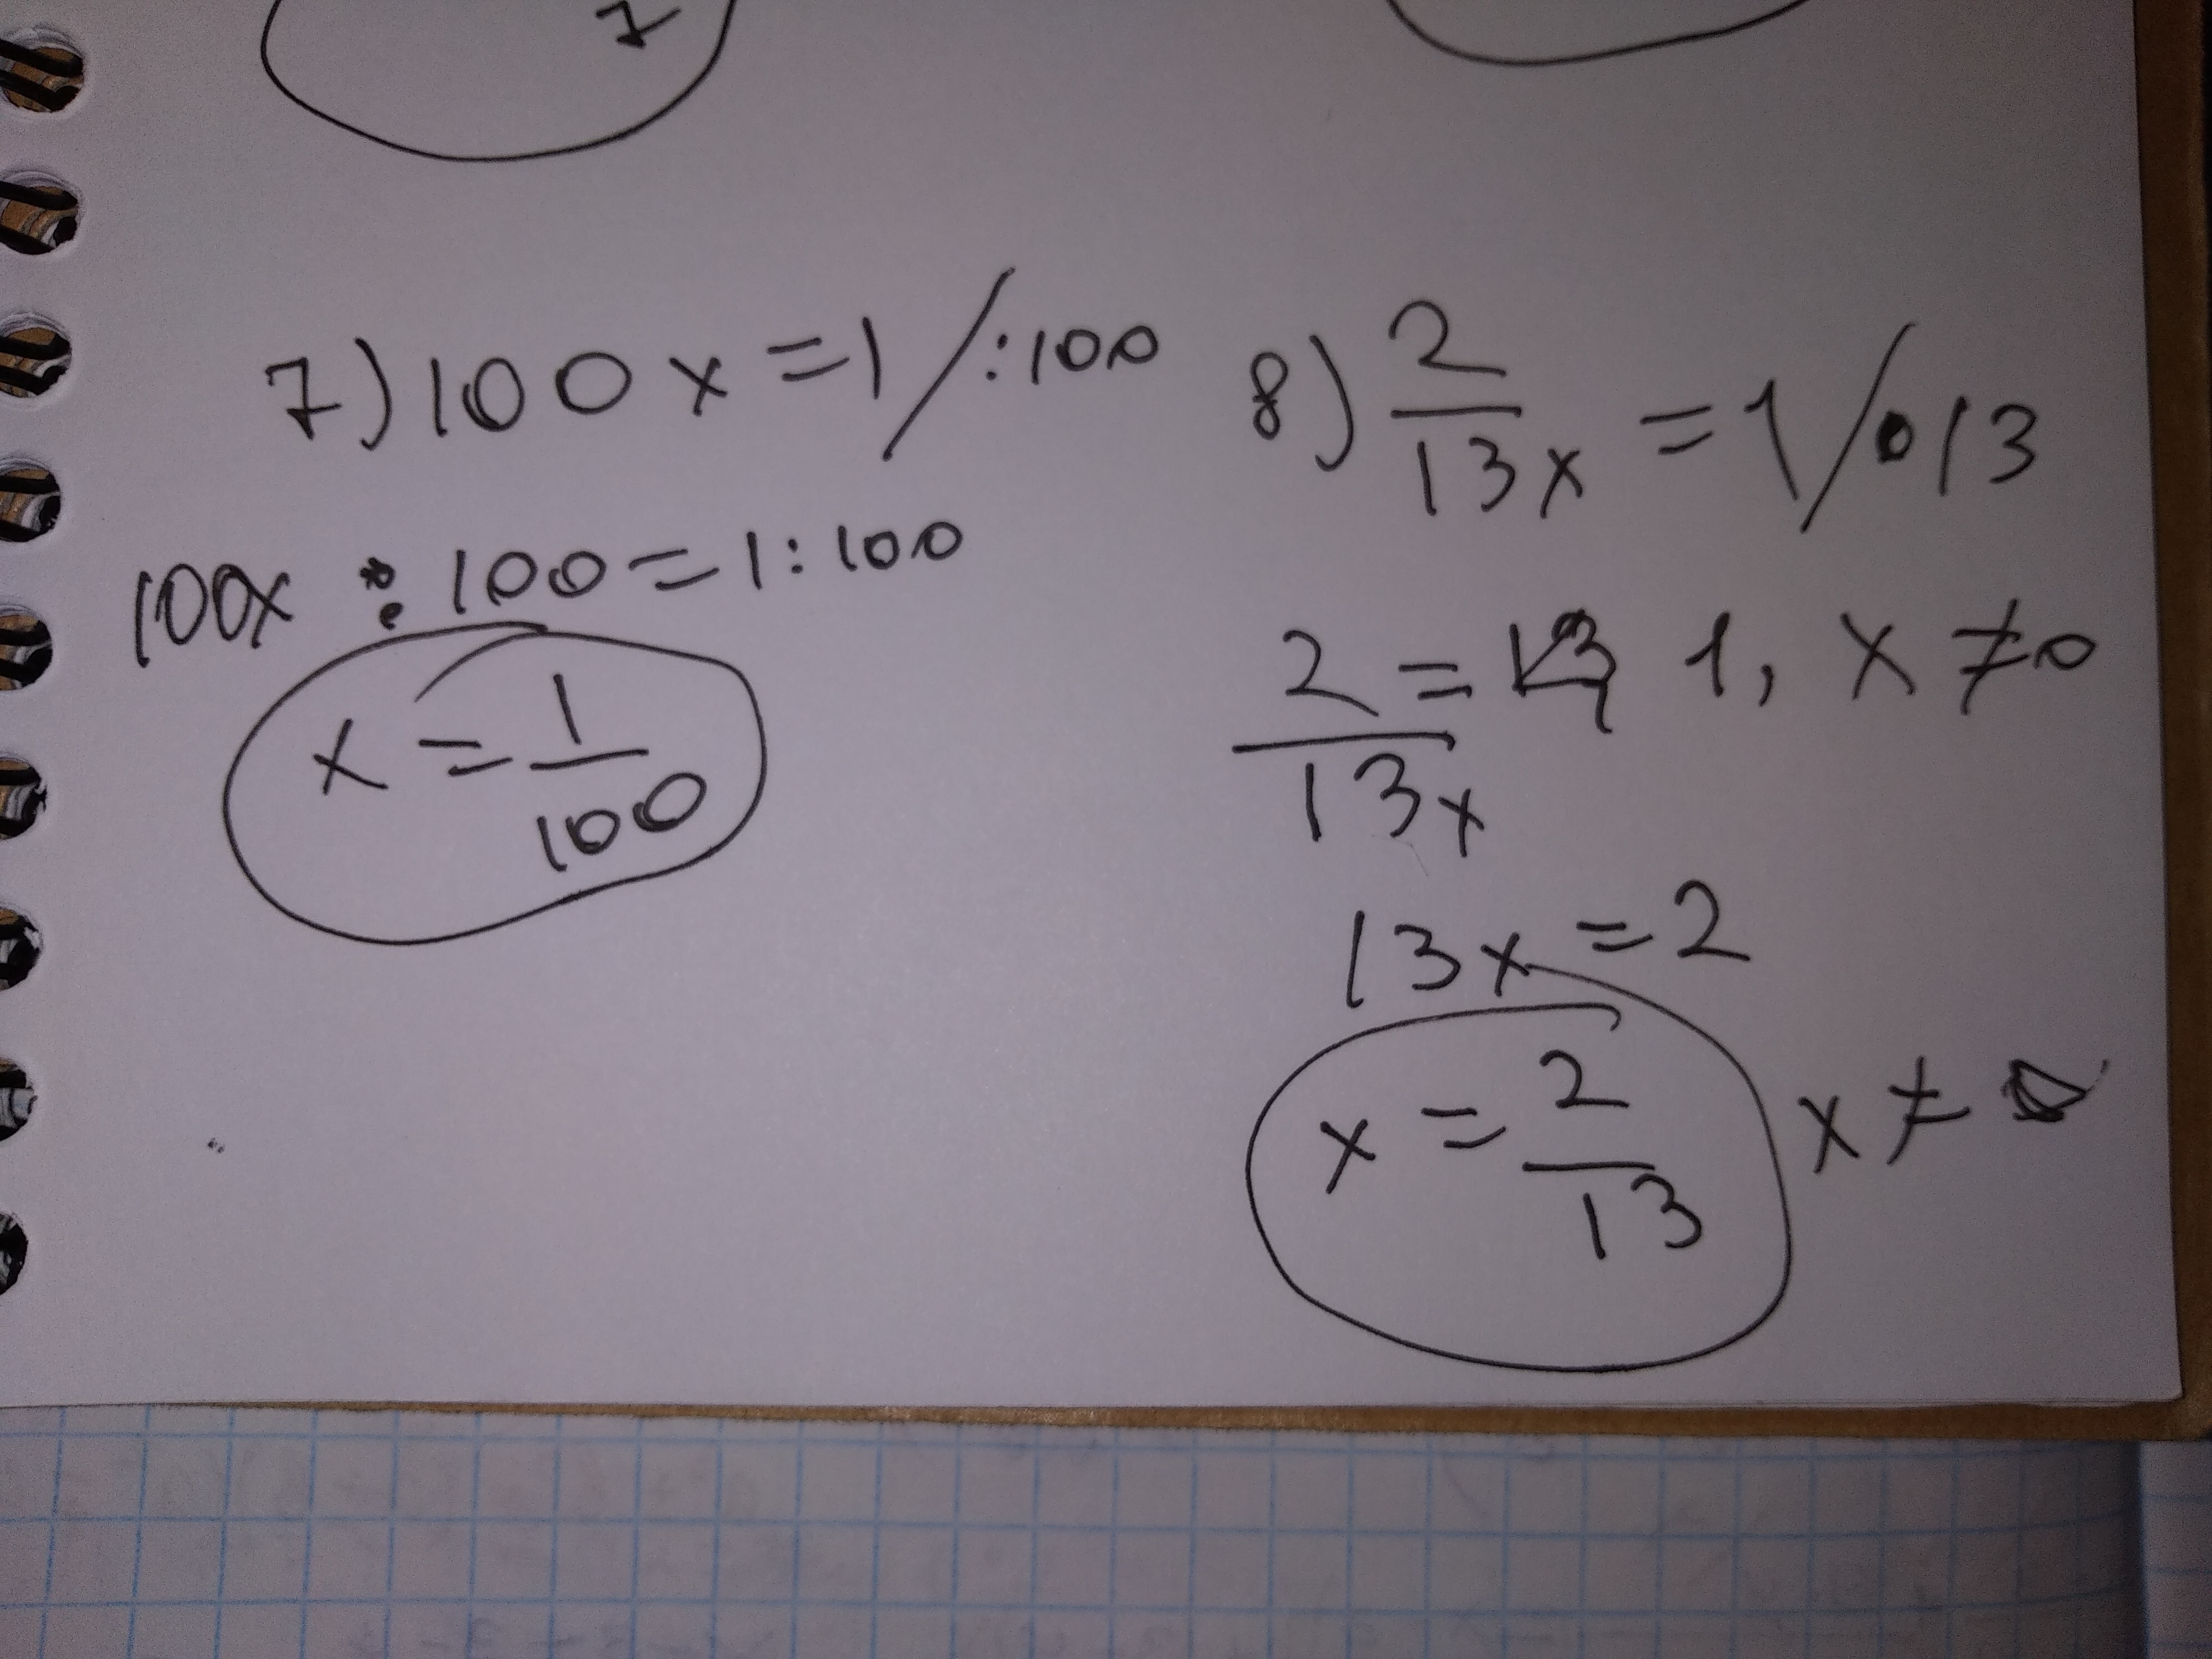 7
7) 100x = 1 / :100
100x : 100 = 1 : 100
x = 1/100
8) 2/13x = 1 / • 13
2/13x = 1, x ≠ 0
13x = 2
x = 2/13 x ≠